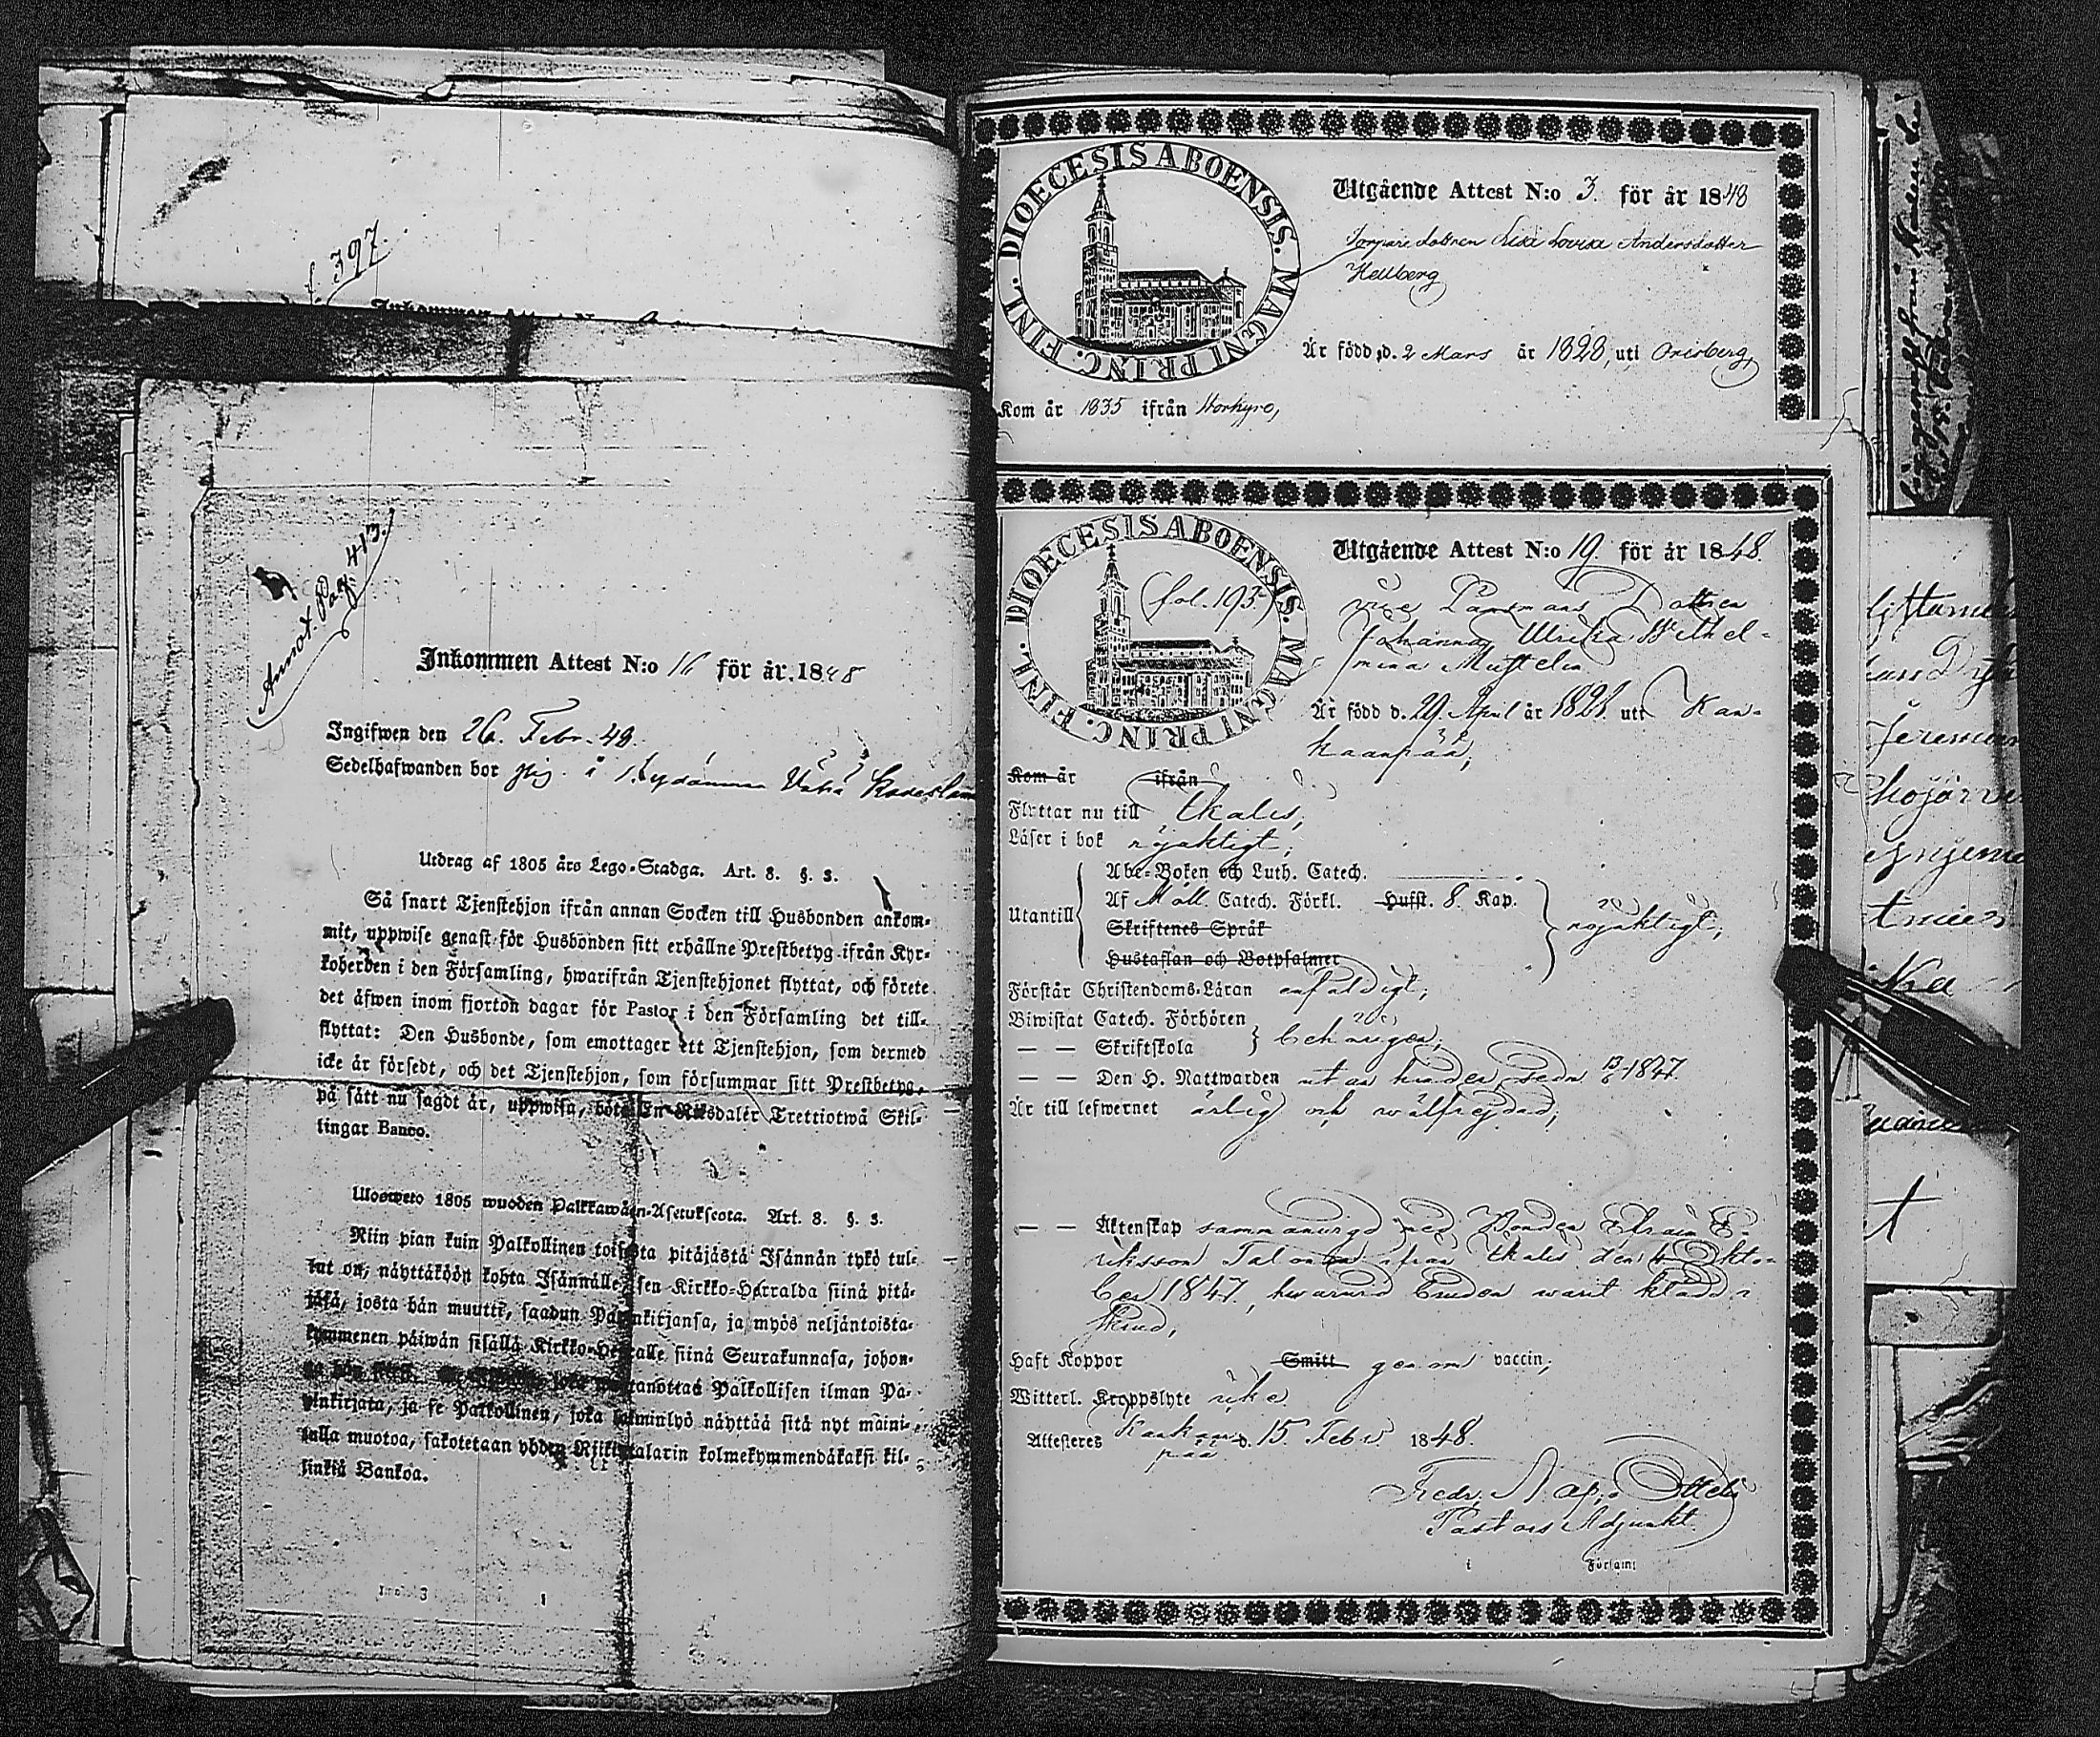 f. 397.
Inkommen Attest N:o
Annot. Pag. 413.
Inkommen Attest N:o 16 för år 1848
Ingifwen den 26. Febr. 48.
Sedelhafwanden bor hig. i Kydönmaa
Utdrag af 1805 års Lego-Stadga. Art. 8. §. 3.
Så snart Tjenstehjon ifrån annan Socken till Husbonden ankom-
mit, uppwise genast för Husbonden sitt erhållne Prestbetyg ifrån Kyr-
koherden i den Församling, hwarifrån Tjenstehjonet flyttat, och förete
det äfwen inom fjorton dagar för Pastor i den Församling det till-
flyttat: Den Husbonde, som emottager ett Tjenstehjon, som dermed
icke är försedt, och det Tjenstehjon, som försummar sitt Prestbetyg,
på sätt nu sagdt är, uppwisa, böte En Riksdaler Trettiotwå Skil-
lingar Banco.
Ulosweto 1805 wuoden Palkkawäen-Asetuksesta. Art. 8. §. 3.
Niin pian kuin Palkollinen toisesta pitäjästä Isännän tykö tul-
lut on, näyttäköön kohta Isännälle sen Kirkko-Herralda siinä pitä-
jäsä, josta hän muutti, saadun Papinkirjansa, ja myös neljäntoista-
kymmenen päiwän sisällä Kirkko-Herralle siinä Seurakunnasa, johon-
tanottaa Palkollisen ilman Pa-
pinkirjata, ja se Palkollinen, joka laiminlyö näyttää sitä nyt maini-
tulla muotoa, sakotetaan yhden Riikintalarin kolmekymmendäkaksi kil-
linkiä Bankoa.
DIOECESIS ABOENSIS. MAGNI PRINC. FINL.
Utgående Attest N:o 3. för år 1848
Torpare dottren Lisa Lovisa Andersdotter
Hellberg
Är född d. 2 Mars år 1828, uti Orisberg,
Kom år 1835 ifrån Storkyro,
DIOECESIS ABOENSIS. MAGNI PRINC. FINL.
fol. 195
Utgående Attest N:o 19. för år 1848.
vice Länsmans Dottren
Johanna Ulrika Wilhel-
mina Mustelin
Är född d. 29 April år 1828. uti Kan-
kaanpää,
Kom år ifrån
Flyttar nu till Ikalis,
Läser i bok nöjaktigt,
Utantill
Abc-Boken och Luth. Catech.
Af Möll. Catech. Förkl. Hufst. 8. Kap.
Skriftenes Språk
Hustaflan och Botpsalmer
nöjaktigt,
Förstår Christendoms-Läran enfaldigt,
Biwistat Catech. Förhören
— — Skriftskola
behörigen,
— — Den H. Nattwarden utan hinder, sedn 13/6 1847.
Är till lefwernet ärlig och wälfrejdad,
— — Äktenskap sammanvigd med Bonden Efraim E-
riksson Talonen ifrån Ikalis den 4 Okto-
ber 1847, hwarwid Bruden warit klädd i
skrud,
Haft Koppor Smitt genom vaccin,
Witterl. Kroppslyte icke
Attesteres Kankan-
pää d. 15. Febr. 1848.
Fredr. Nap. Ottelin
Pastors Adjunkt.
i Församl